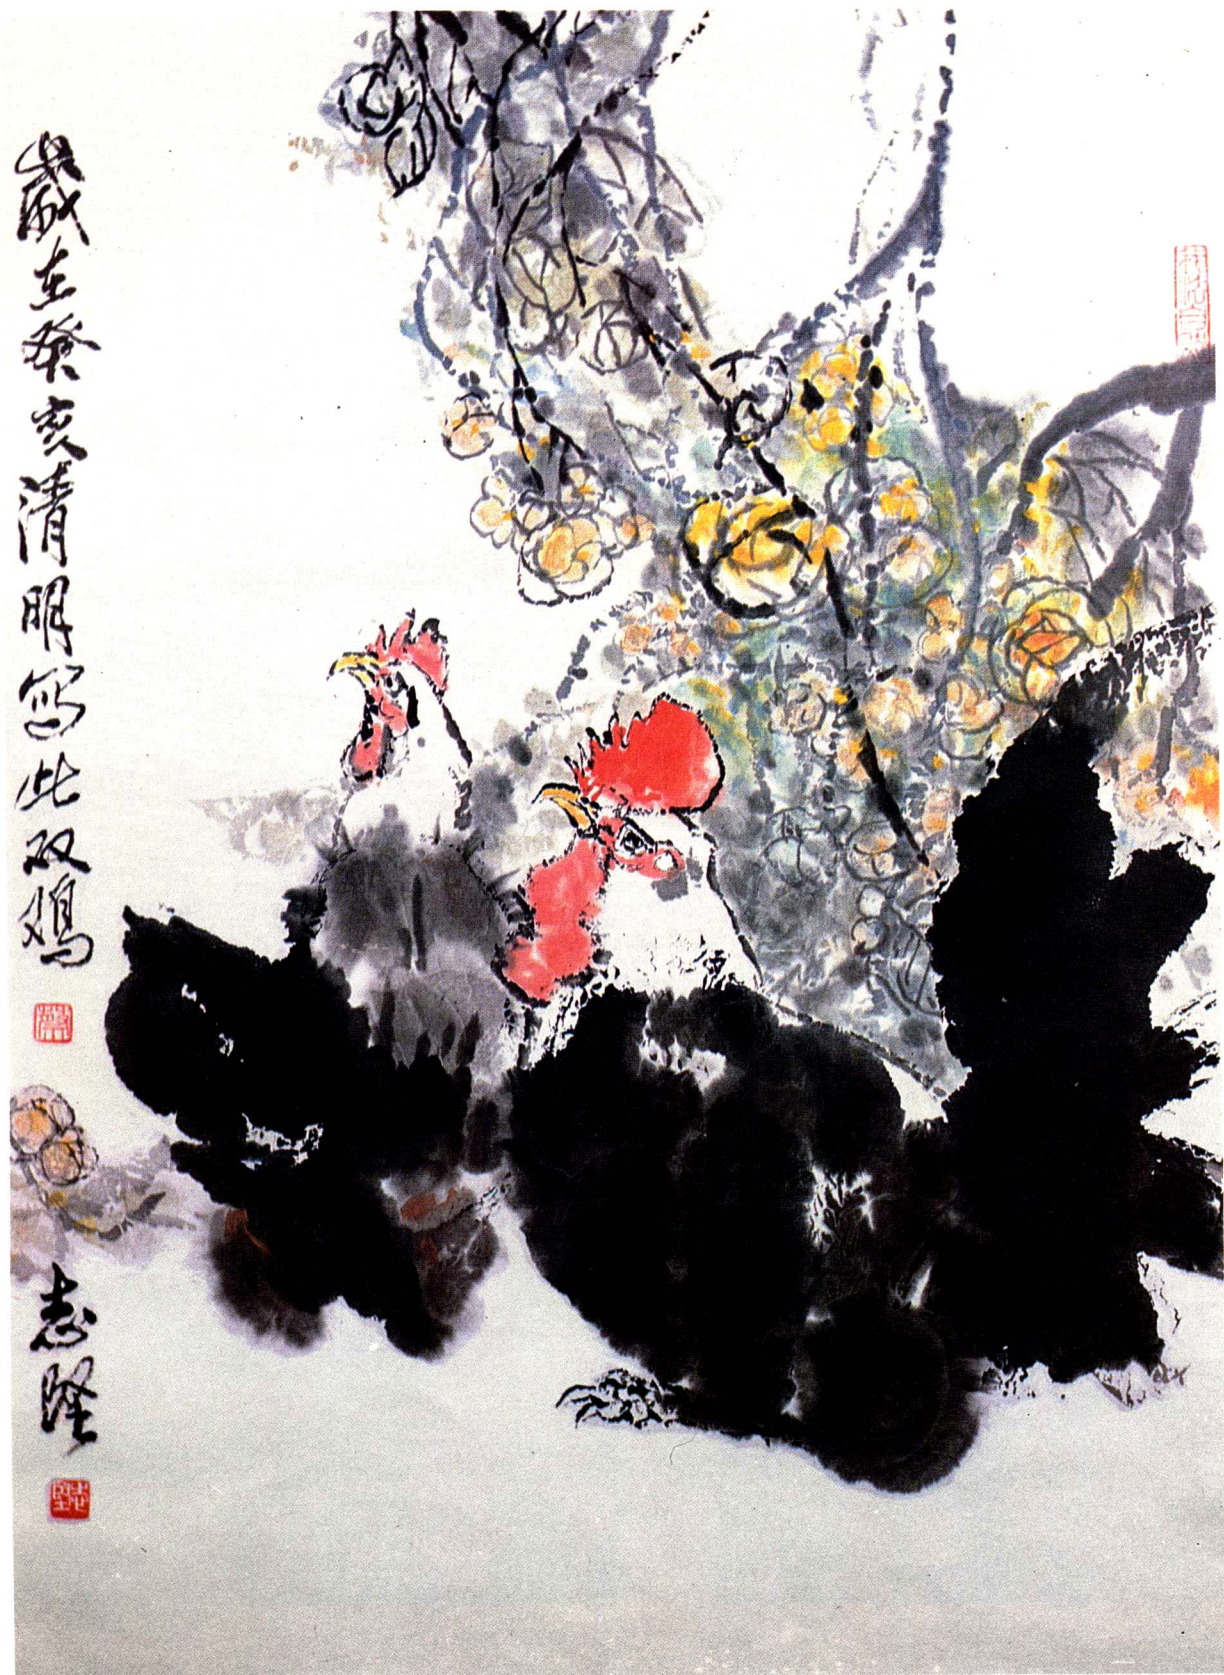 歲在癸亥清明写此双鸡
志隆